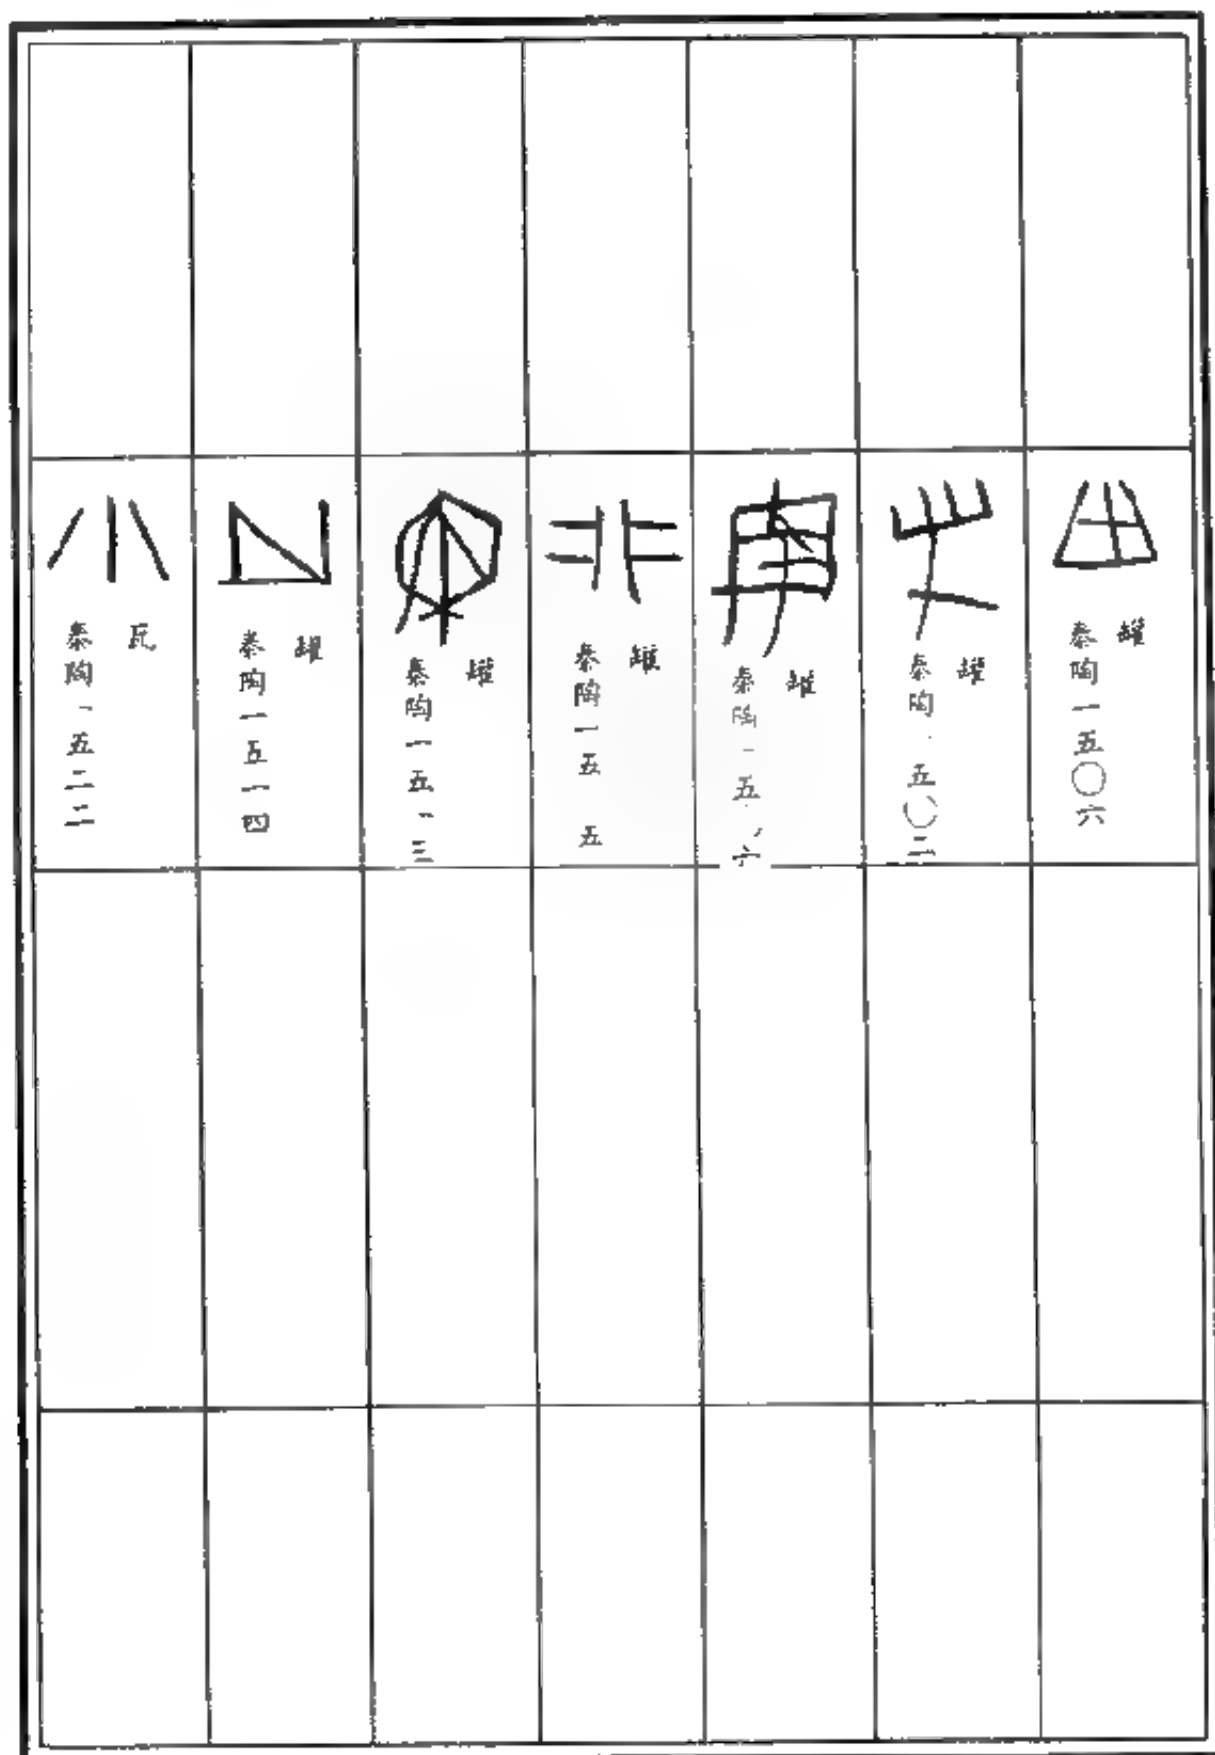 罐
秦陶一五〇六
罐
秦陶 五〇二
罐
秦陶一五 六
罐
秦陶一五 五
罐
秦陶一五一三
罐
秦陶一五一四
瓦
秦陶一五二二